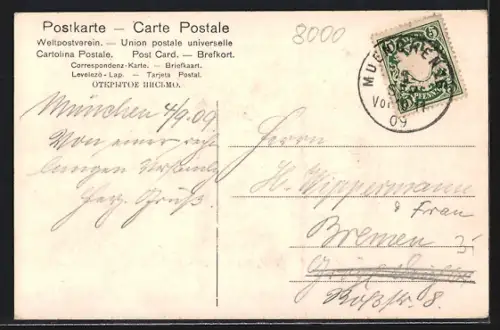 Postkarte – Carte Postale
Weltpostverein. – Union postale universelle
Cartolina Postale. Post Card. – Brefkort.
Correspondenz-Karte. – Briefkaart.
Levelező-Lap. – Tarjeta Postal.
ОТКРЫТОЕ ПИСЬМО.
8000
MUENCHEN
Vor
09
5
PFENNIG
München 4/9.09.
Von einer
Herz. Gruß.
Herrn
H. Wippermann
& Frau
Bremen
8.